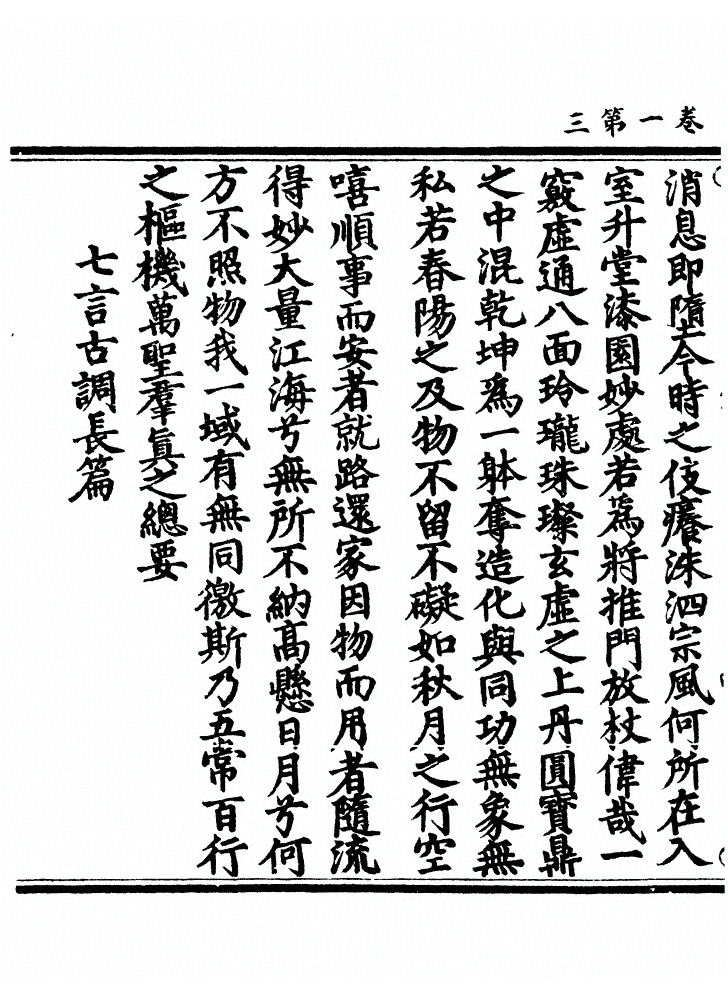 卷一第三
消息即墮今時之伎癢洙泗宗風何所在入
室升堂漆園妙處若爲將推門放杖偉哉一
竅虛通八面玲瓏珠璨玄虛之上丹圓寶鼎
之中混乾坤爲一躰奪造化與同功無象無
私若春陽之及物不留不礙如秋月之行空
嘻順事而安者就路還家因物而用者隨流
得妙大量江海兮無所不納高懸日月兮何
方不照物我一域有無同徼斯乃五常百行
之樞機萬聖羣眞之總要
七言古調長篇